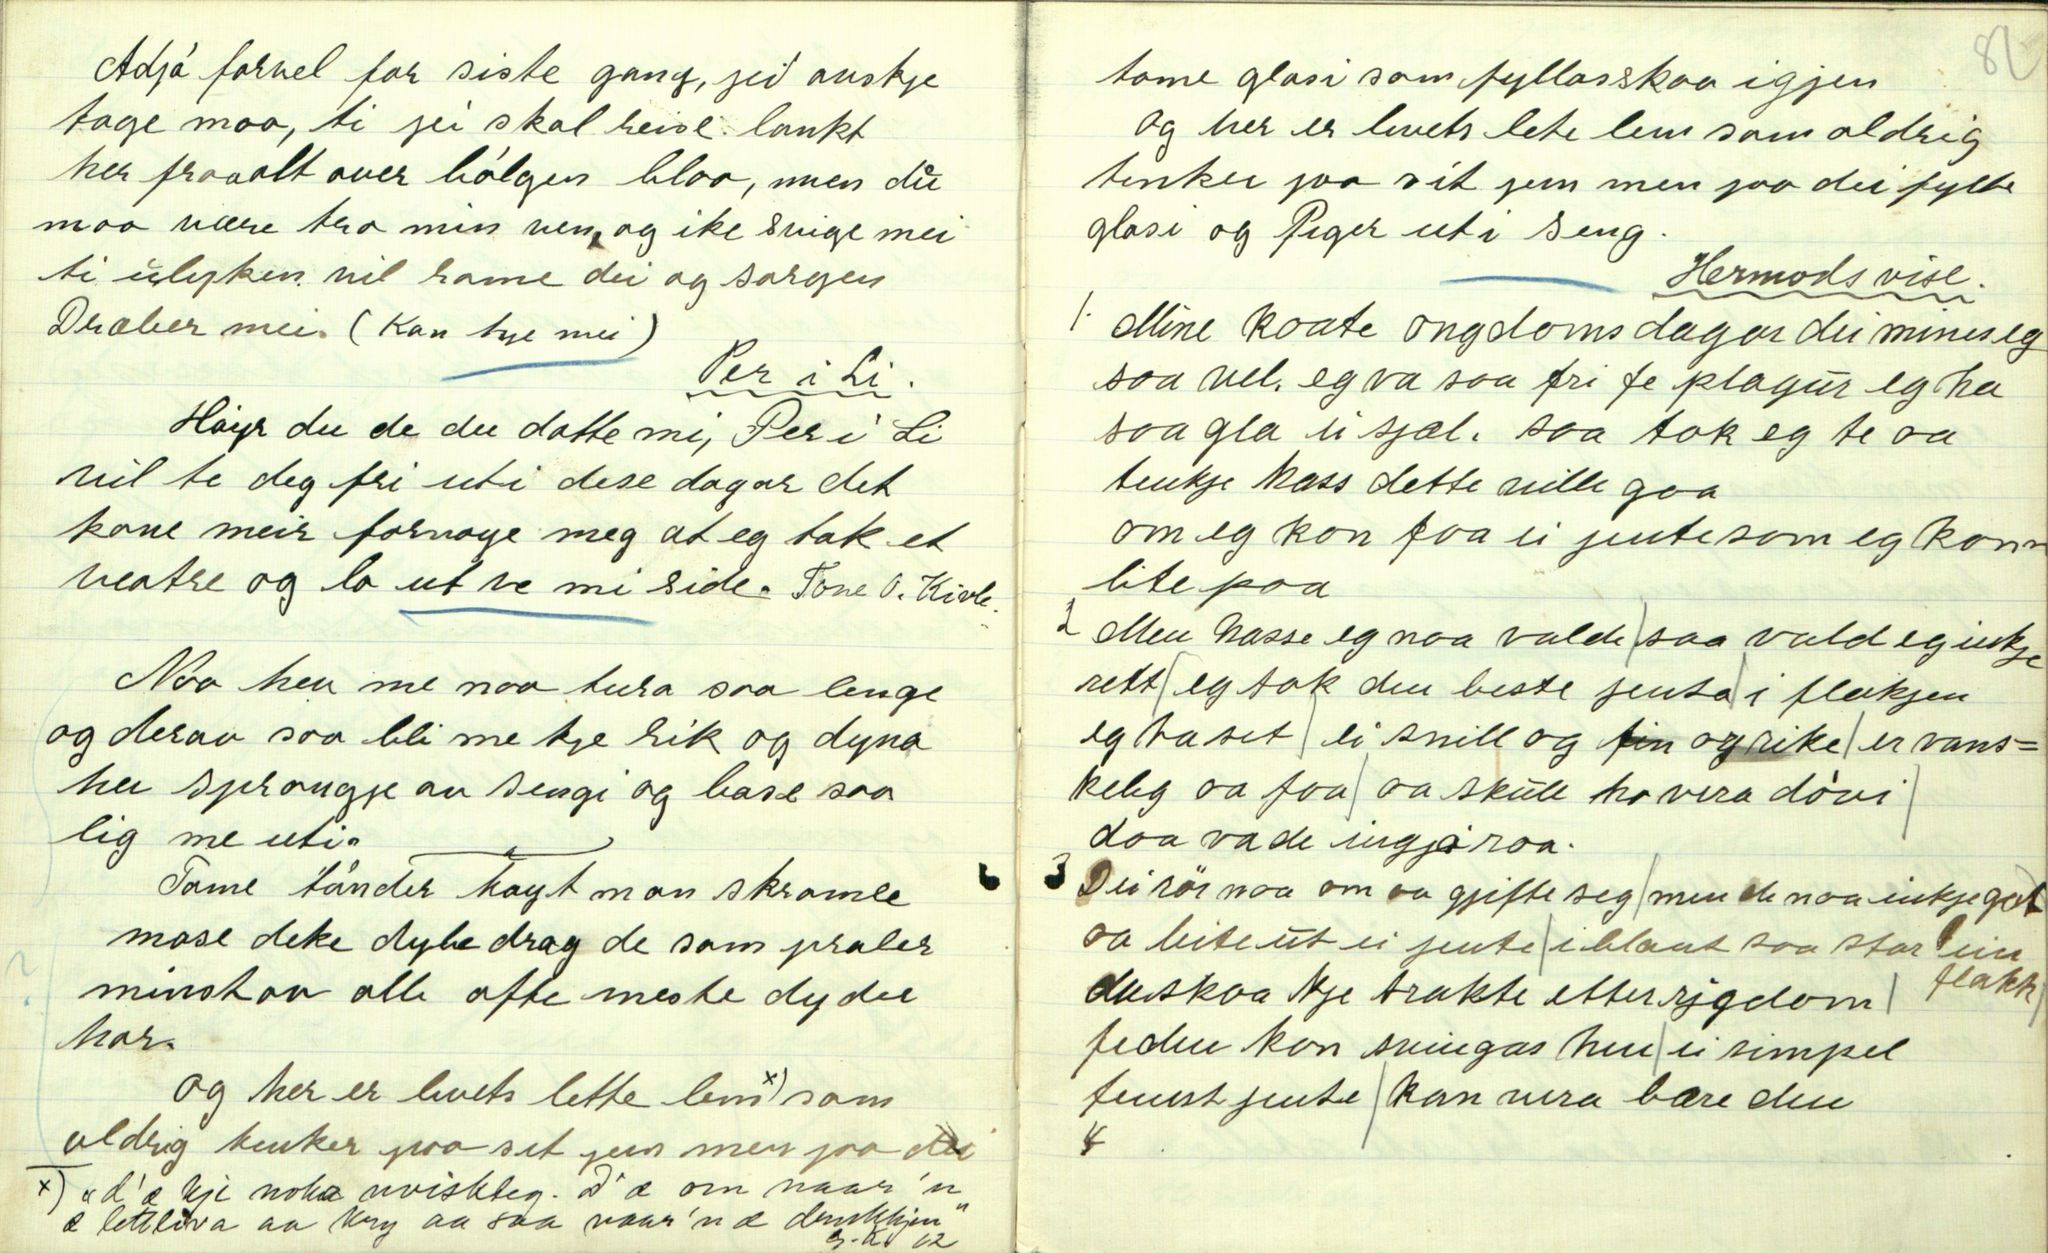 Adjø farvel for siste gang, jei ønskje
tage maa, ti jei skal reise langt
her fraaalt over bølgen blaa, men du
maa være tro min ven, og ike svige mei
ti ulyken vil rame dei og sorgen
Dræber mei. (Kan hye mei)
Per i Li.
Høyr du de du datte mi, Per i Li
vil te deg fri uti dese dagar det
kane meir fornøye meg at eg tok et
veatre og la ut ve mi side. Tone O. Kivle.
Naa heu me naa tura saa lenge
og derav saa bli me kje rik og dyna
heu sprongje av sengi og base saa
lig me uti.
Tome tónder høyt man skramle
mase deke dybe drag de som praler
minst av alle ofte meste dyder
har.
og her er livets lette lem x) som
aldrig tenker paa set jem men paa dei
x) "d'æ kje noka uviskleg. D'æ om naar 'n
æ lettliva aa kry aa saa naar 'n æ drukkjen"
82
tome glasi som fyllasskaa igjen
og her er livets lete lem som aldrig
tenker paa sit jem men paa dei fylte
glasi og Piger uti seng.
Hermods vise.
1. Mine kaate ongdoms dagar dei mines eg
saa vel. eg va saa fri fe plagur eg ha
saa gla ei sjæl. saa tok eg te aa
tenkje kass dette ville gaa
om eg kon faa ei jente som eg konn
lite paa
2 Men hasse eg naa valde | saa vald eg inkje
rett | eg tok den beste jenta | i flokjen
eg ha set | ei snill og fin og rike | er vans=
kelig aa faa | aa skull ho vera dóvi |
daa va de ingjói raa.
3 Dei rör naa om aa gjifte seg | men de naa inkje gat
aa leite ut ei jente | i blant saa stor ein
flokk |
du skaa kje trakte etter rigdom |
fe den kon svingas hen | ei simpel
tenest jente | kan vera bære den
4